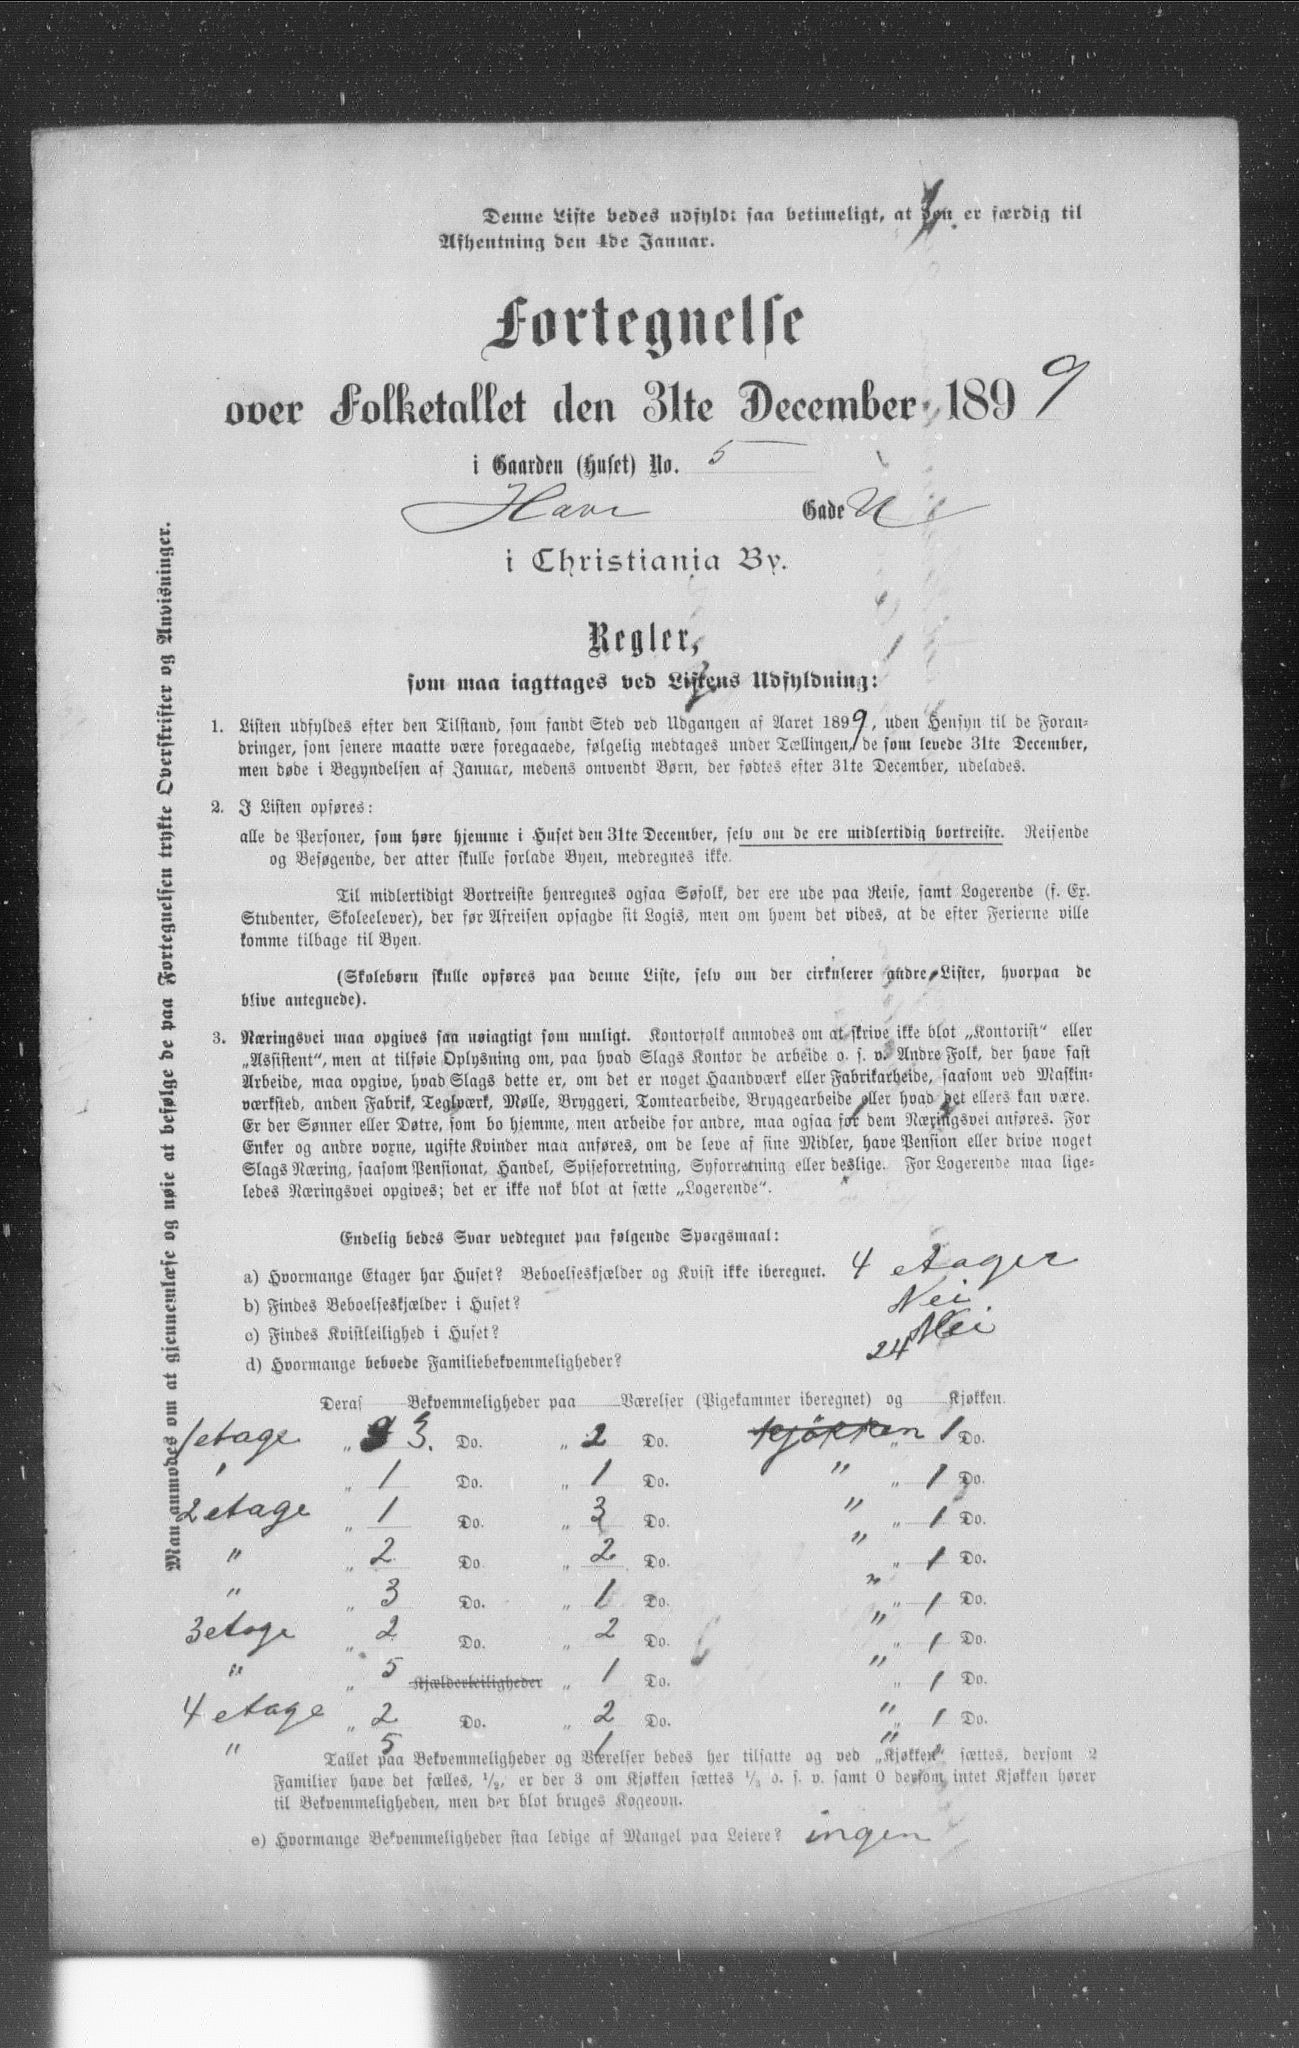 Denne Liste bedes udfyldt saa betimeligt, at den er færdig til
Afhentning den 4de Januar.
Fortegnelse
over Folketallet den 31te December 1899
i Gaarden (Huset) No. 5
Have Gade U
i Christiania By.
Regler,
som maa iagttages ved Listens Udfyldning:
1. Listen udfyldes efter den Tilstand, som fandt Sted ved Udgangen af Aaret 1899, uden Hensyn til de Foran-
dringer, som senere maatte være foregaaede, følgelig medtages under Tællingen, de som levede 31te December,
men døde i Begyndelsen af Januar, medens omvendt Børn, der fødtes efter 31te December, udelades.
2. I Listen opføres:
alle de Personer, som høre hjemme i Huset den 31te December, selv om de ere midlertidig bortreiste. Reisende
og Besøgende, der atter skulle forlade Byen, medregnes ikke.
Til midlertidigt Bortreiste henregnes ogsaa Søfolk, der ere ude paa Reise, samt Logerende (f. Ex.
Studenter, Skoleelever), der før Afreisen opsagde sit Logis, men om hvem det vides, at de efter Ferierne ville
komme tilbage til Byen.
(Skolebørn skulle opføres paa denne Liste, selv om der cirkulerer andre Lister, hvorpaa de
blive antegnede).
3. Næringsvei maa opgives saa nøiagtigt som muligt. Kontorfolk anmodes om at skrive ikke blot „Kontorist“ eller
„Assistent“, men at tilføie Oplysning om, paa hvad Slags Kontor de arbeide o. s. v. Andre Folk, der have fast
Arbeide, maa opgive, hvad Slags dette er, om det er noget Haandværk eller Fabrikarbeide, saasom ved Maskin-
værksted, anden Fabrik, Teglværk, Mølle, Bryggeri, Tomtearbeide, Bryggearbeide eller hvad det ellers kan være.
Er der Sønner eller Døtre, som bo hjemme, men arbeide for andre, maa ogsaa for dem Næringsvei anføres. For
Enker og andre voxne, ugifte Kvinder maa anføres, om de leve af sine Midler, have Pension eller drive noget
Slags Næring, saasom Pensionat, Handel, Spiseforretning, Syforretning eller deslige. For Logerende maa lige-
ledes Næringsvei opgives; det er ikke nok blot at sætte „Logerende“.
Endelig bedes Svar vedtegnet paa følgende Spørgsmaal:
a) Hvormange Etager har Huset? Beboelseskjælder og Kvist ikke iberegnet. 4 etager
b) Findes Beboelseskjælder i Huset? Nei
c) Findes Kvistleilighed i Huset? Nei
d) Hvormange beboede Familiebekvemmeligheder? 24
Deraf Bekvemmeligheder paa Værelser (Pigekammer iberegnet) og Kjøkken.
1 etage „ 3. Do. „ 2 Do. kjøkken „ 1 Do.
" „ 1 Do. „ 1 Do. " „ 1 Do.
2 etage „ 1 Do. „ 3 Do. " „ 1 Do.
" „ 2 Do. „ 2 Do. " „ 1 Do.
" „ 3 Do. „ 1 Do. " „ 1 Do.
3 etage „ 2 Do. „ 2 Do. " „ 1 Do.
" „ 5 Kjælderleiligheder „ 1 Do. " „ 1 Do.
4 etage „ 2 Do. „ 2 Do. " „ 1 Do.
" 5 1 "
Tallet paa Bekvemmeligheder og Værelser bedes her tilsatte og ved „Kjøkken“ sættes, dersom 2
Familier have det fælles, 1/2, er der 3 om Kjøkken sættes 1/3 o. s. v. samt 0 dersom intet Kjøkken hører
til Bekvemmeligheden, men der blot bruges Kogeovn.
e) Hvormange Bekvemmeligheder staa ledige af Mangel paa Leiere? ingen
Man anmodes om at gjennemlæse og nøie at befølge de paa Fortegnelsen trykte Overskrifter og Anvisninger.